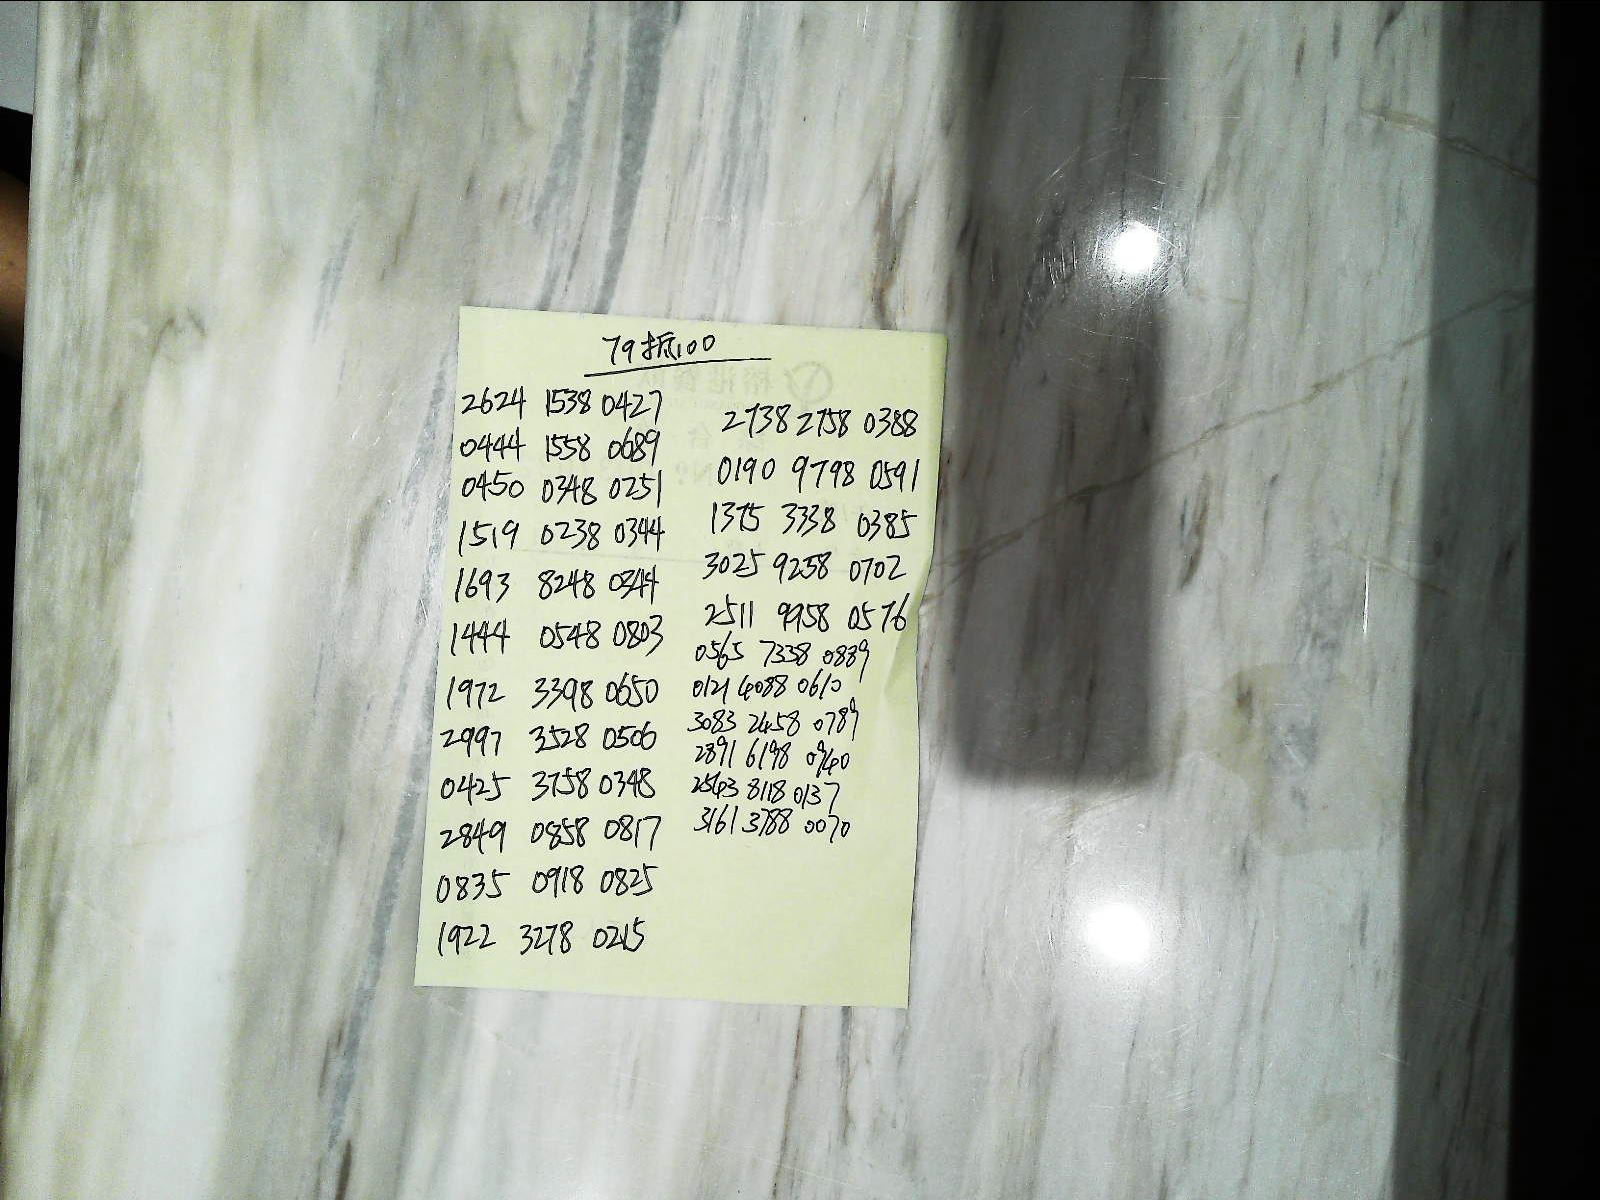 79抵100
2624 1538 0427
0444 1558 0689
0450 0348 0251
1519 0238 0344
1693 8248 0344
1444 0548 0803
1972 3398 0650
2997 3528 0506
0425 3758 0348
2849 0858 0817
0835 0918 0825
1922 3278 0215
2738 2758 0388
0190 9798 0591
1375 3338 0385
3025 9258 0702
2511 9958 0576
0565 7338 0889
0121 4088 0610
3083 2458 0789
2891 6198 0940
2543 8118 0137
3161 3788 0070